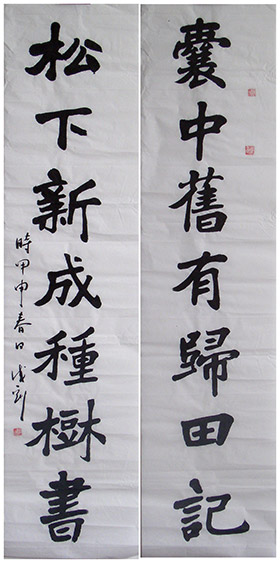 囊中舊有歸田記
松下新成種樹書
時甲申春日